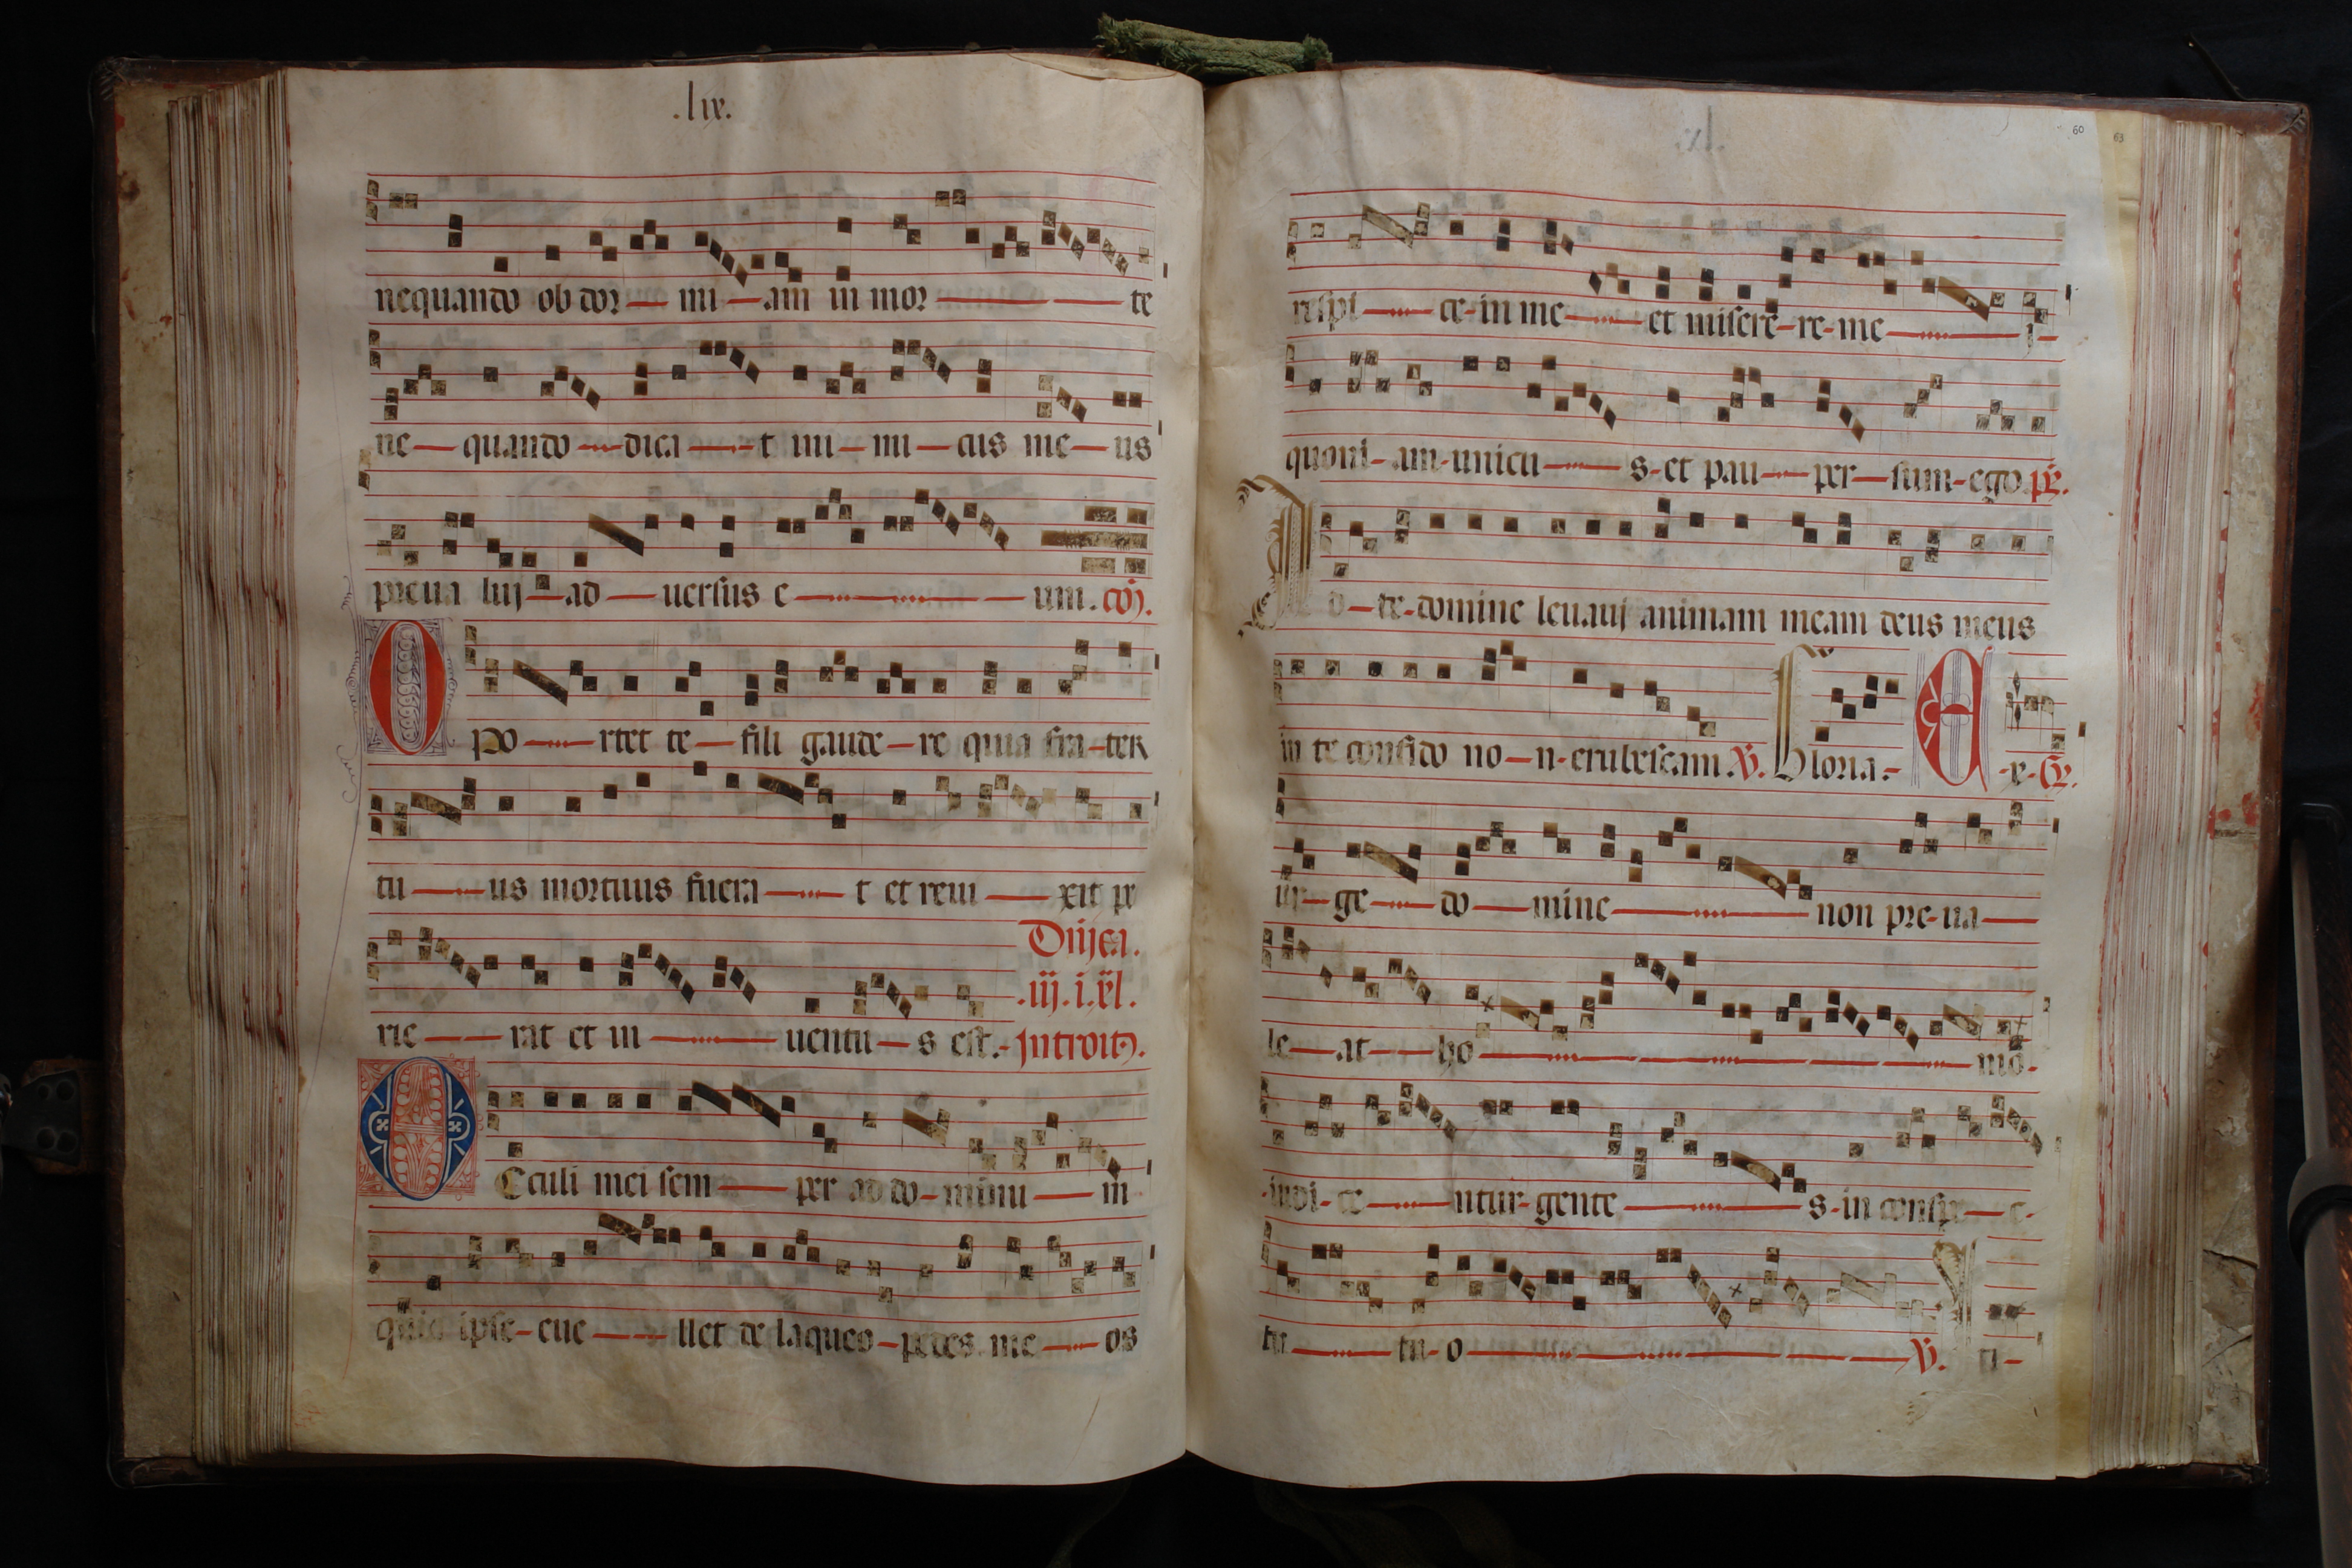 .lix.
nequando ob dor mi am in mor te
ne quando dica t ini mi cus me us
preua luj ad uersus e um. cõ.
Opo rtet te fili gaude re quia fra ter
tu us mortuus fuera t et reui xit pe
Dñica.
.iij. i. xl.
rie rat et in uentu s est. introitꝰ.
Oculi mei sem per ad do minu m
quia ipse eue llet de laqueo pedes me os
60
63
respi ce in me et misere re me i
quoni am unicu s et pau per sum ego. ps̃.
Ad te domine leuauj animam meam deus meus
in te confido no n erubescam. v̄. Gloria. E x
ur ge do mine non pre ua
le at ho mo.
iudi ce ntur gente s in conspe c
tu tu o v̄. ti